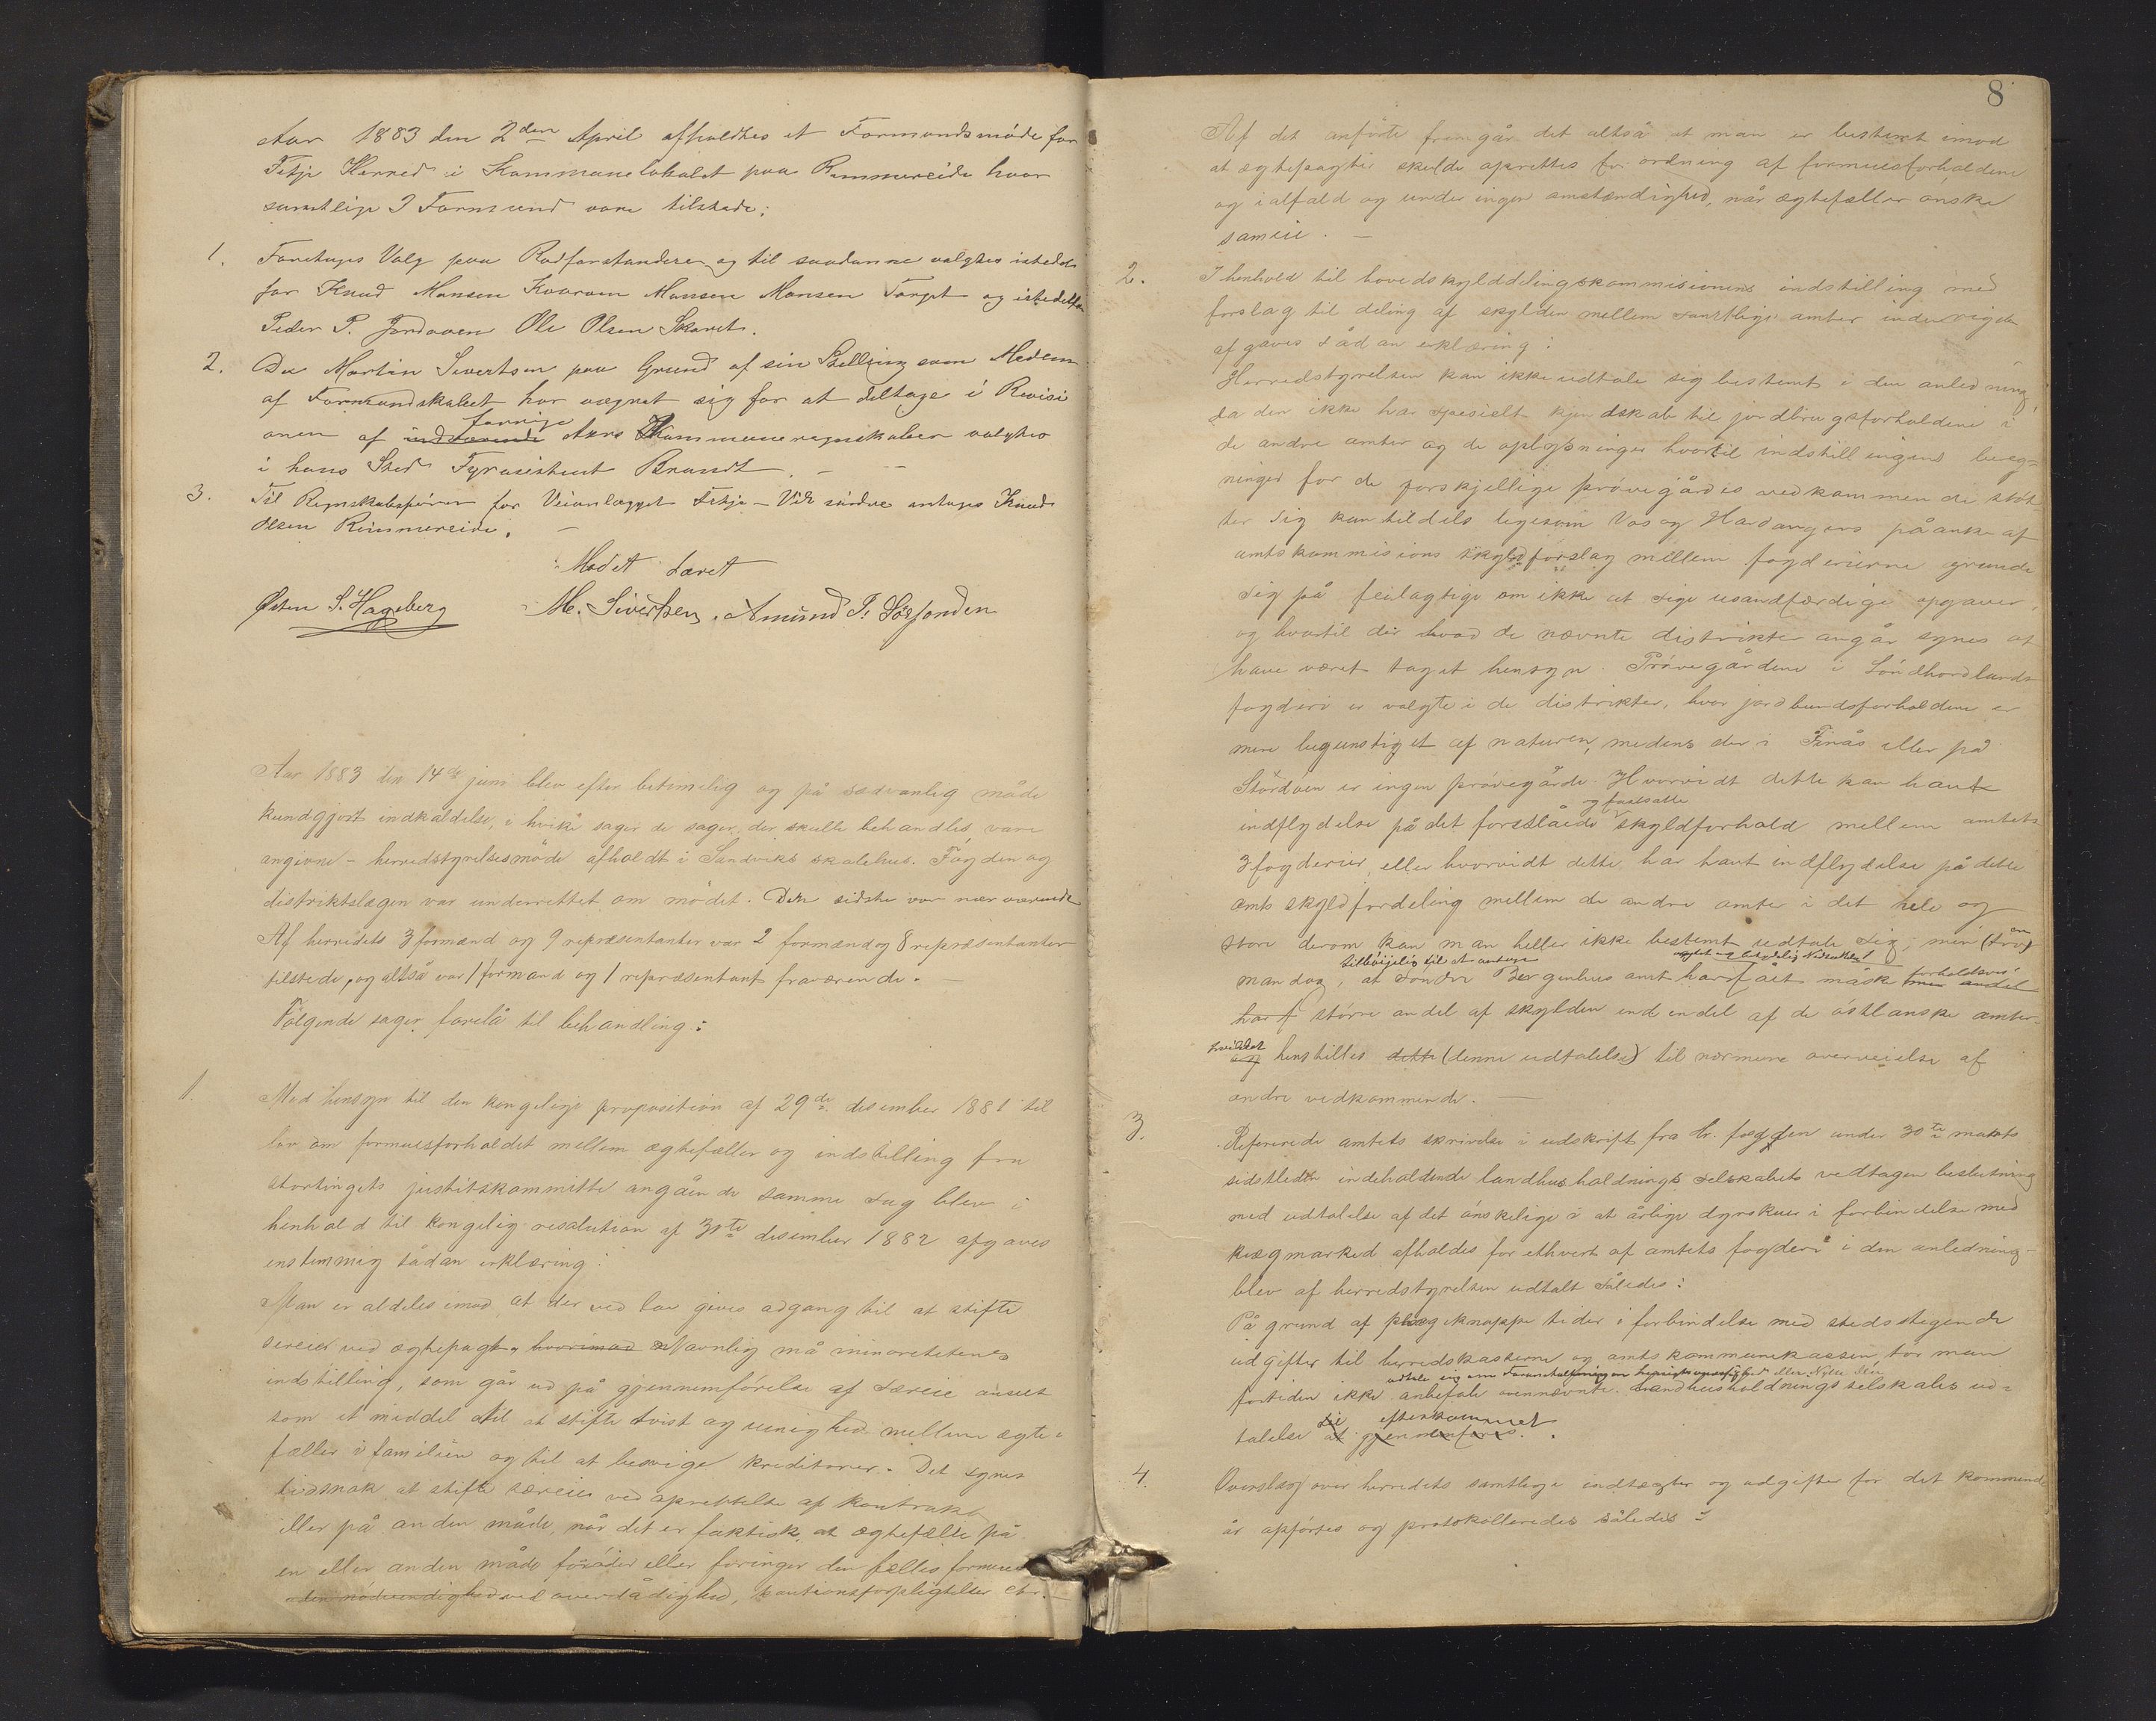 Aar 1883 den 2den April afholdtes et Formandsmøde for
Fitje Herred i Kommunelokalet paa Rimmereide hvor
samtlige 3 Formænd vare tilstede:
1. Foretoges Valg paa Rodforstandere og til saadanne valgtes istedet
for Knud Monsen Kvarven Monsen Monsen Torget og istedetfor
Peder P. Ole Olsen Skaret.
2. Da Martin Sivertsen paa Grund af sin Stilling som Medlem
af Formandskabet har vægret sig for at deltage i Revisi
onen af indeværende forrige Aars Kommuneregnskaber valgtes
i hans Sted Fyrassistent Brandt. —
3. Til Regnskabsfører for Veianlægget Fitje – Vik søndre antoges Knud
Olsen Rimmereide. —
Mødet hævet
Østen S. Hageberg M. Sivertsen. Amund T. Sørfonden
Aar 1883 den 14de juni blev efter betimelig og på sædvanlig måde
kundgjort indkaldelse, i hvilke sager de sager, der skulle behandles, vare
angivne – herredstyrelsesmøde afholdt i Sandviks skolehus. Fogden og
distriktslægen var underrettet om mødet. Den sidste var nærværende
Af herredets 3 formænd og 9 repræsentanter var 2 formænd og 8 repræsentanter
tilstede, og altså var 1 formand og 1 repræsentant fraværende. —
Følgende sager forelå til behandling:
1. Med hensyn til den kongelige proposition af 29de desember 1881 til
lov om formuesforholdet mellem ægtefæller og indstilling fra
stortingets justitskommitte angående samme sag blev i
henhold til kongelig resolution af 30te desember 1882 afgaves
enstemmig sådan erklæring:
Man er aldeles imod, at der ved lov gives adgang til at stifte
særeier ved ægtepagt, hvorimod Navnlig må minoritetenes
indstilling, som går ud på gjennemførelse af særeie anset
som et middel til at stifte tvist og uenighed mellem ægte-
fæller i familien og til at besvige kreditorer. Det synes
tidsnok at stifte særeier ved oprettelse af kontrakt
eller på anden måde, når det er faktisk, at ægtefælle på
en eller anden måde forøder eller foringer den fælles formue
uden nødvendighed ved overdådighed, kautionsforpligtelser etc. —
8
Af det anførte fremgår det altså at man er bestemt imod
at ægtepagter skulde oprettes for ordning af formuesforholdene
og ialfald og under ingen omstændighed, når ægtefæller ønske
sameie. —
2. I henhold til hovedskylddelingskommisionens indstilling med
forslag til deling af skylden mellem samtlige amter inden riget
afgaves sådan erklæring:
Herredstyrelsen kan ikke udtale sig bestemt i den anledning,
da den ikke har spesielt kjendskab til jordbrugsforholdene i
de andre amter og de oplysninger hvortil indstillingens bereg-
ninger for de forskjellige prøvegårdes vedkommende støt-
ter sig kan tildels ligesom Vos og Hardangers påanke af
amtskommisions skyldforslag mellem fogderierne grunde
sig på feilagtige om ikke at sige usandfærdige opgaver,
og hvortil der hvad de nævnte distrikter angår synes at
have været taget hensyn. Prøvegårdene i Søndhordlands
fogderi er valgte i de distrikter, hvor jordbundsforholdene er
mere begunstiget af naturen, medens der i Finås eller på
Stordøen er ingen prøvegårde. Hvorvidt dette kan have
indflydelse på det foreslåede og fastsatte skyldforhold mellem amtets
3 fogderier, eller hvorvidt dette har havt indflydelse på dette
amts skyldfordeling mellem de andre amter i det hele og
store derom kan man heller ikke bestemt udtale sig, men (tror)
man dog, tilbøjelig til at antage at søndre Bergenhus amt har fået måske forholdsvis
har f større andel af skylden end endel af de østlanske amter.
hvilket og henstilles dette (denne udtalelse) til nærmere overveielse af
andre vedkommende. —
3. Refererede amtets skrivelse i udskrift fra hr. fogden under 30te marts
sidstleden indeholdende landhusholdnings selskabets vedtagen beslutning
med udtalelse af det ønskelige i at årlige dyrskuer i forbindelse med
kvægmarked afholdes for ethvert af amtets fogderi i den anledning
blev af herredstyrelsen udtalt således:
På grund af pengeknappe tider i forbindelse med stedsstegende
udgifter til herredskasserne og amtskommunekassen tør man
fortiden ikke anbefale ovennævnte landhusholdningsselskabs ud-
talelse til efterkommet at gjennemføres.
4. Overslag over herredets samtlige indtægter og udgifter for det kommende
år opførtes og protokolleredes således: